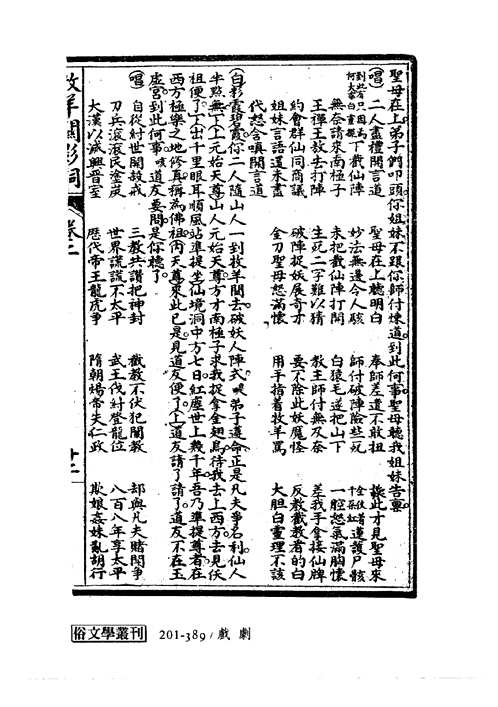 聖母在上弟子們叩頭你姐妹不跟你師付煉道到此何事聖母聽我姐妹告禀
(唱)二人盡禮開言道 聖母在上聽明白 奉師差遣不敢扭 擡此才見聖母來
到此有只因為丁截仙陣 妙法無邊令人駭 師付破陣險些死 全仗着道護尸骸
何大事白靈
無奈請來南極子 未把截仙陣打開 白猿毛遂把山下 一腔怒氣滿胸懷
王禪王敖去打陣 生死二字難以猜 教主師付無及奈 差我手拿接仙牌
約會群仙同商議 破陣捉妖展奇才 要不除此妖魔怪 反教截教看的白
姐妹言語還未盡 金刀聖母怒滿懷 用手指着牧羊罵 大胆白靈理不該
代怒含嗔開言道
(白)彩霞碧霞你二人隨山人一到牧羊關去破妖人陣式 弟子遵命正是凡夫爭名利仙人
半點無丁上元始天尊山人元始天尊方才南極子求我捉拿金翅鳥待我去上西方去見伏
祖便了丁出十里眼耳順風站準提坐仙境洞中方七日紅塵世上幾千年吾乃準提尊者在
西方極樂之地修真稱為佛祖丙天尊來此已是見道友便了上道友請了請了道友不在玉
虛宮到此何事咳道友要問是你穩了
(唱)自從紂世開殺戒 三教共讚把神封 截教不伏犯闡教 却與凡夫賭鬥爭
刀兵滾滾民塗炭 世界謊謊不太平 武王伐紂登龍位 八百八年享太平
大漢以滅興晉室 歷代帝王龍虎爭 隋朝煬帝失仁政 欺娘姦妹亂胡行
牧羊關影詞 卷二 十二
俗文學叢刊 201-389/戲劇